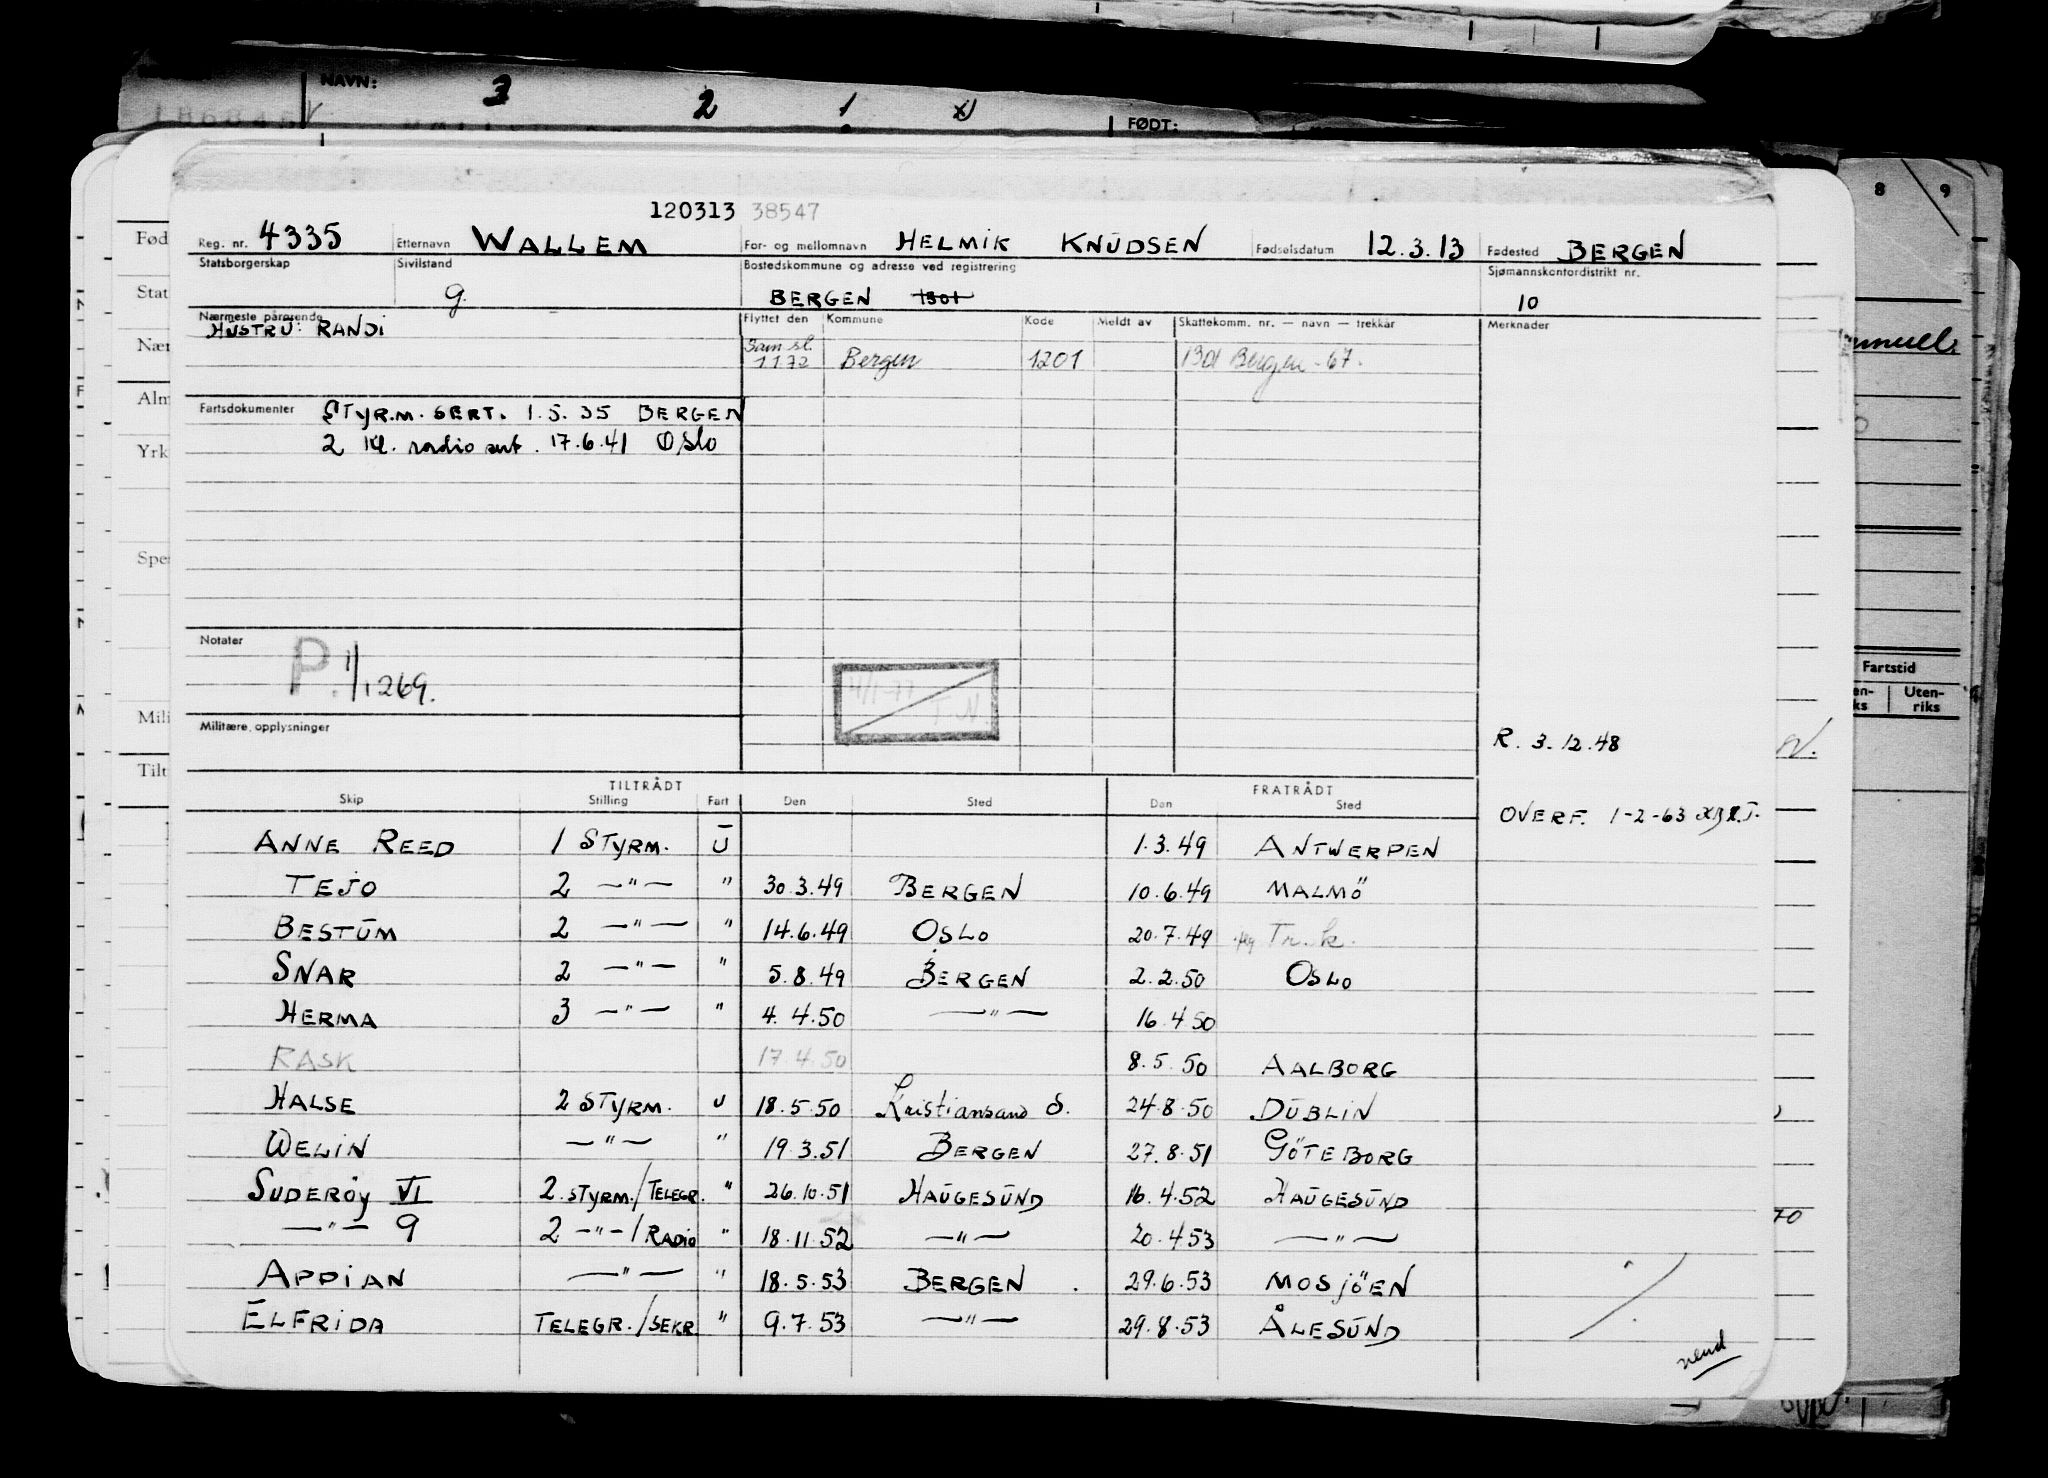 NAVN: 3 2 1
FØDT:
8 9
120313 38547
Reg. nr. 4335 Etternavn WALLEM For- og mellomnavn HELMIK KNUDSEN Fødselsdatum 12.3.13 Fødested BERGEN
Statsborgerskap Sivilstand Bostedskommune og adresse ved registrering Sjømannskontordistrikt nr.
g. BERGEN 1301 10
Nærmeste pårørende Flyttet den Kommune Kode Meldt av Skattekomm. nr. — navn — trekkår Merknader
HUSTRU: RANDI
Sam sl.
1172 Bergen 1201 1301 Bergen - 67.
Fartsdokumenter STYRM. SERT. 1.5.35 BERGEN
2 Kl. radio sert. 17.6.41 OSLO
Notater
P. 1/1269.
4/1-77
T.N.
Militære opplysninger
R. 3.12.48
TILTRÅDT FRATRÅDT
Skip Stilling Fart Den Sted Den Sted
OVERF. 1-2-63
ANNE REED 1 STYRM. U 1.3.49 ANTWERPEN
TEJO 2 —"— " 30.3.49 BERGEN 10.6.49 MALMÖ
BESTUM 2 —"— " 14.6.49 OSLO 20.7.49 Tr.k.
SNAR 2 —"— " 5.8.49 BERGEN 2.2.50 OSLO
HERMA 3 —"— " 4.4.50 —"— 16.4.50
RASK 17.4.50 8.5.50 AALBORG
HALSE 2 STYRM. U 18.5.50 Kristiansand S. 24.8.50 DUBLIN
WELIN —"— " 19.3.51 BERGEN 27.8.51 GÖTEBORG
SUDERØY VI 2. STYRM./TELEGR. " 26.10.51 HAUGESUND 16.4.52 HAUGESUND
—"— 9 2 —"—/RADIO " 18.11.52 —"— 20.4.53 —"—
APPIAN —"— " 18.5.53 BERGEN 29.6.53 MOSJÖEN
ELFRIDA TELEGR./SEKR " 9.7.53 —"— 29.8.53 ÅLESUND
vend
Fød
Stat
Nær
Alm
Yrk
Spe
Mili
Tilt
Fartstid
en-
ks
Uten-
riks
70